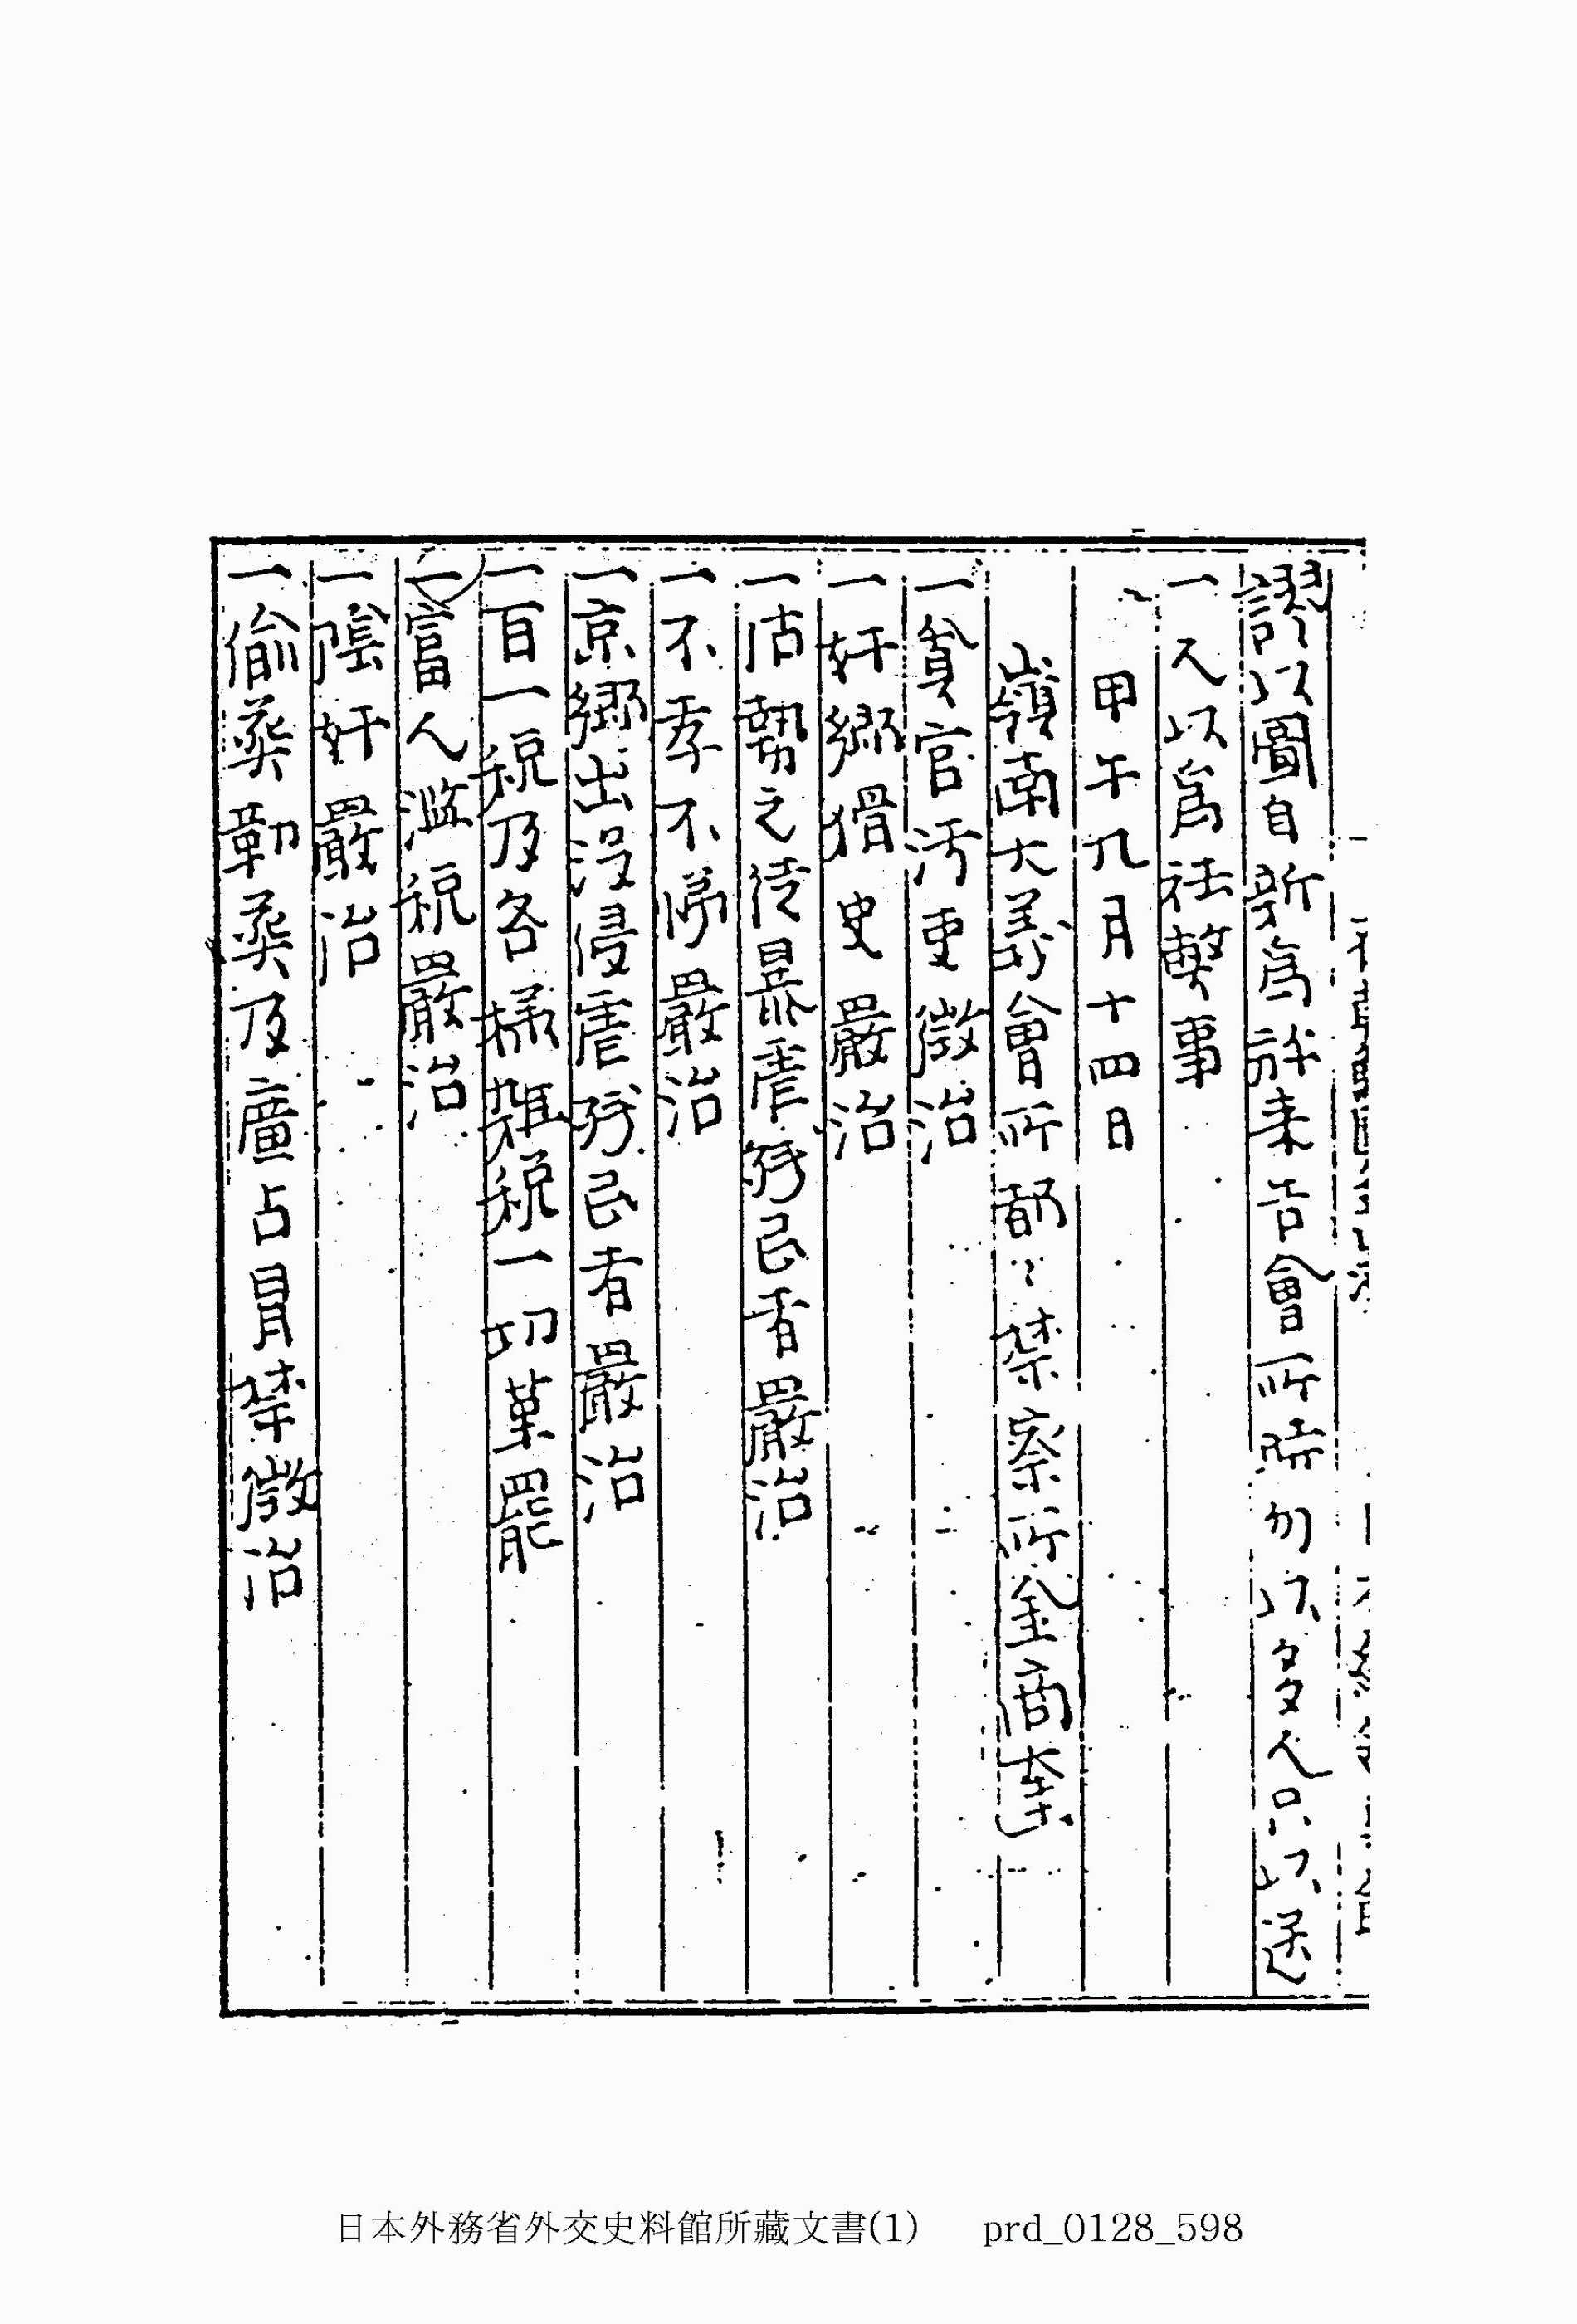 謬以圖自新爲許來告會所時勿以多人只以送
一人以爲社弊事
甲午九月十四日
嶺南大義會所都々禁察所金商奎
一貪官汚吏懲治
一奸鄉猾吏嚴治
一估勢之徒暴虐殘民者嚴治
一不孝不悌嚴治
一京鄉出沒侵虐殘民者嚴治
一百一稅及各樣雜稅一切革罷
一富人濫稅嚴治
一隂奸嚴治
一偷葬勒葬及廣占冒禁懲治
日本外務省外交史料館所藏文書(1) prd_0128_598